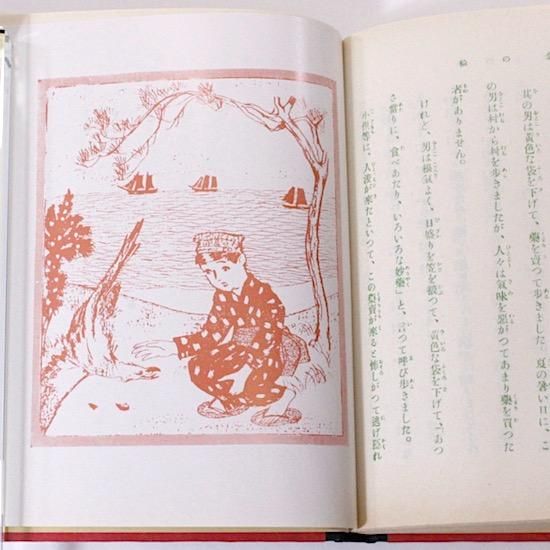 其の男は黄色な袋を下げて、藥を賣つて歩きました。夏の暑い日に、こ
の男は村から村を歩きましたが、人々は氣味を惡がつてあまり藥を買つた
者がありません。
けれど、男は根氣よく、日盛りを笠を被つて、黄色な袋を下げて、「あつ
さ當りに、食べあたり、いろいろな妙藥」と、言つて呼び歩きました。
小供等は、人浚が來たといつて、この藥賣が來ると怖しがつて逃げ隱れ